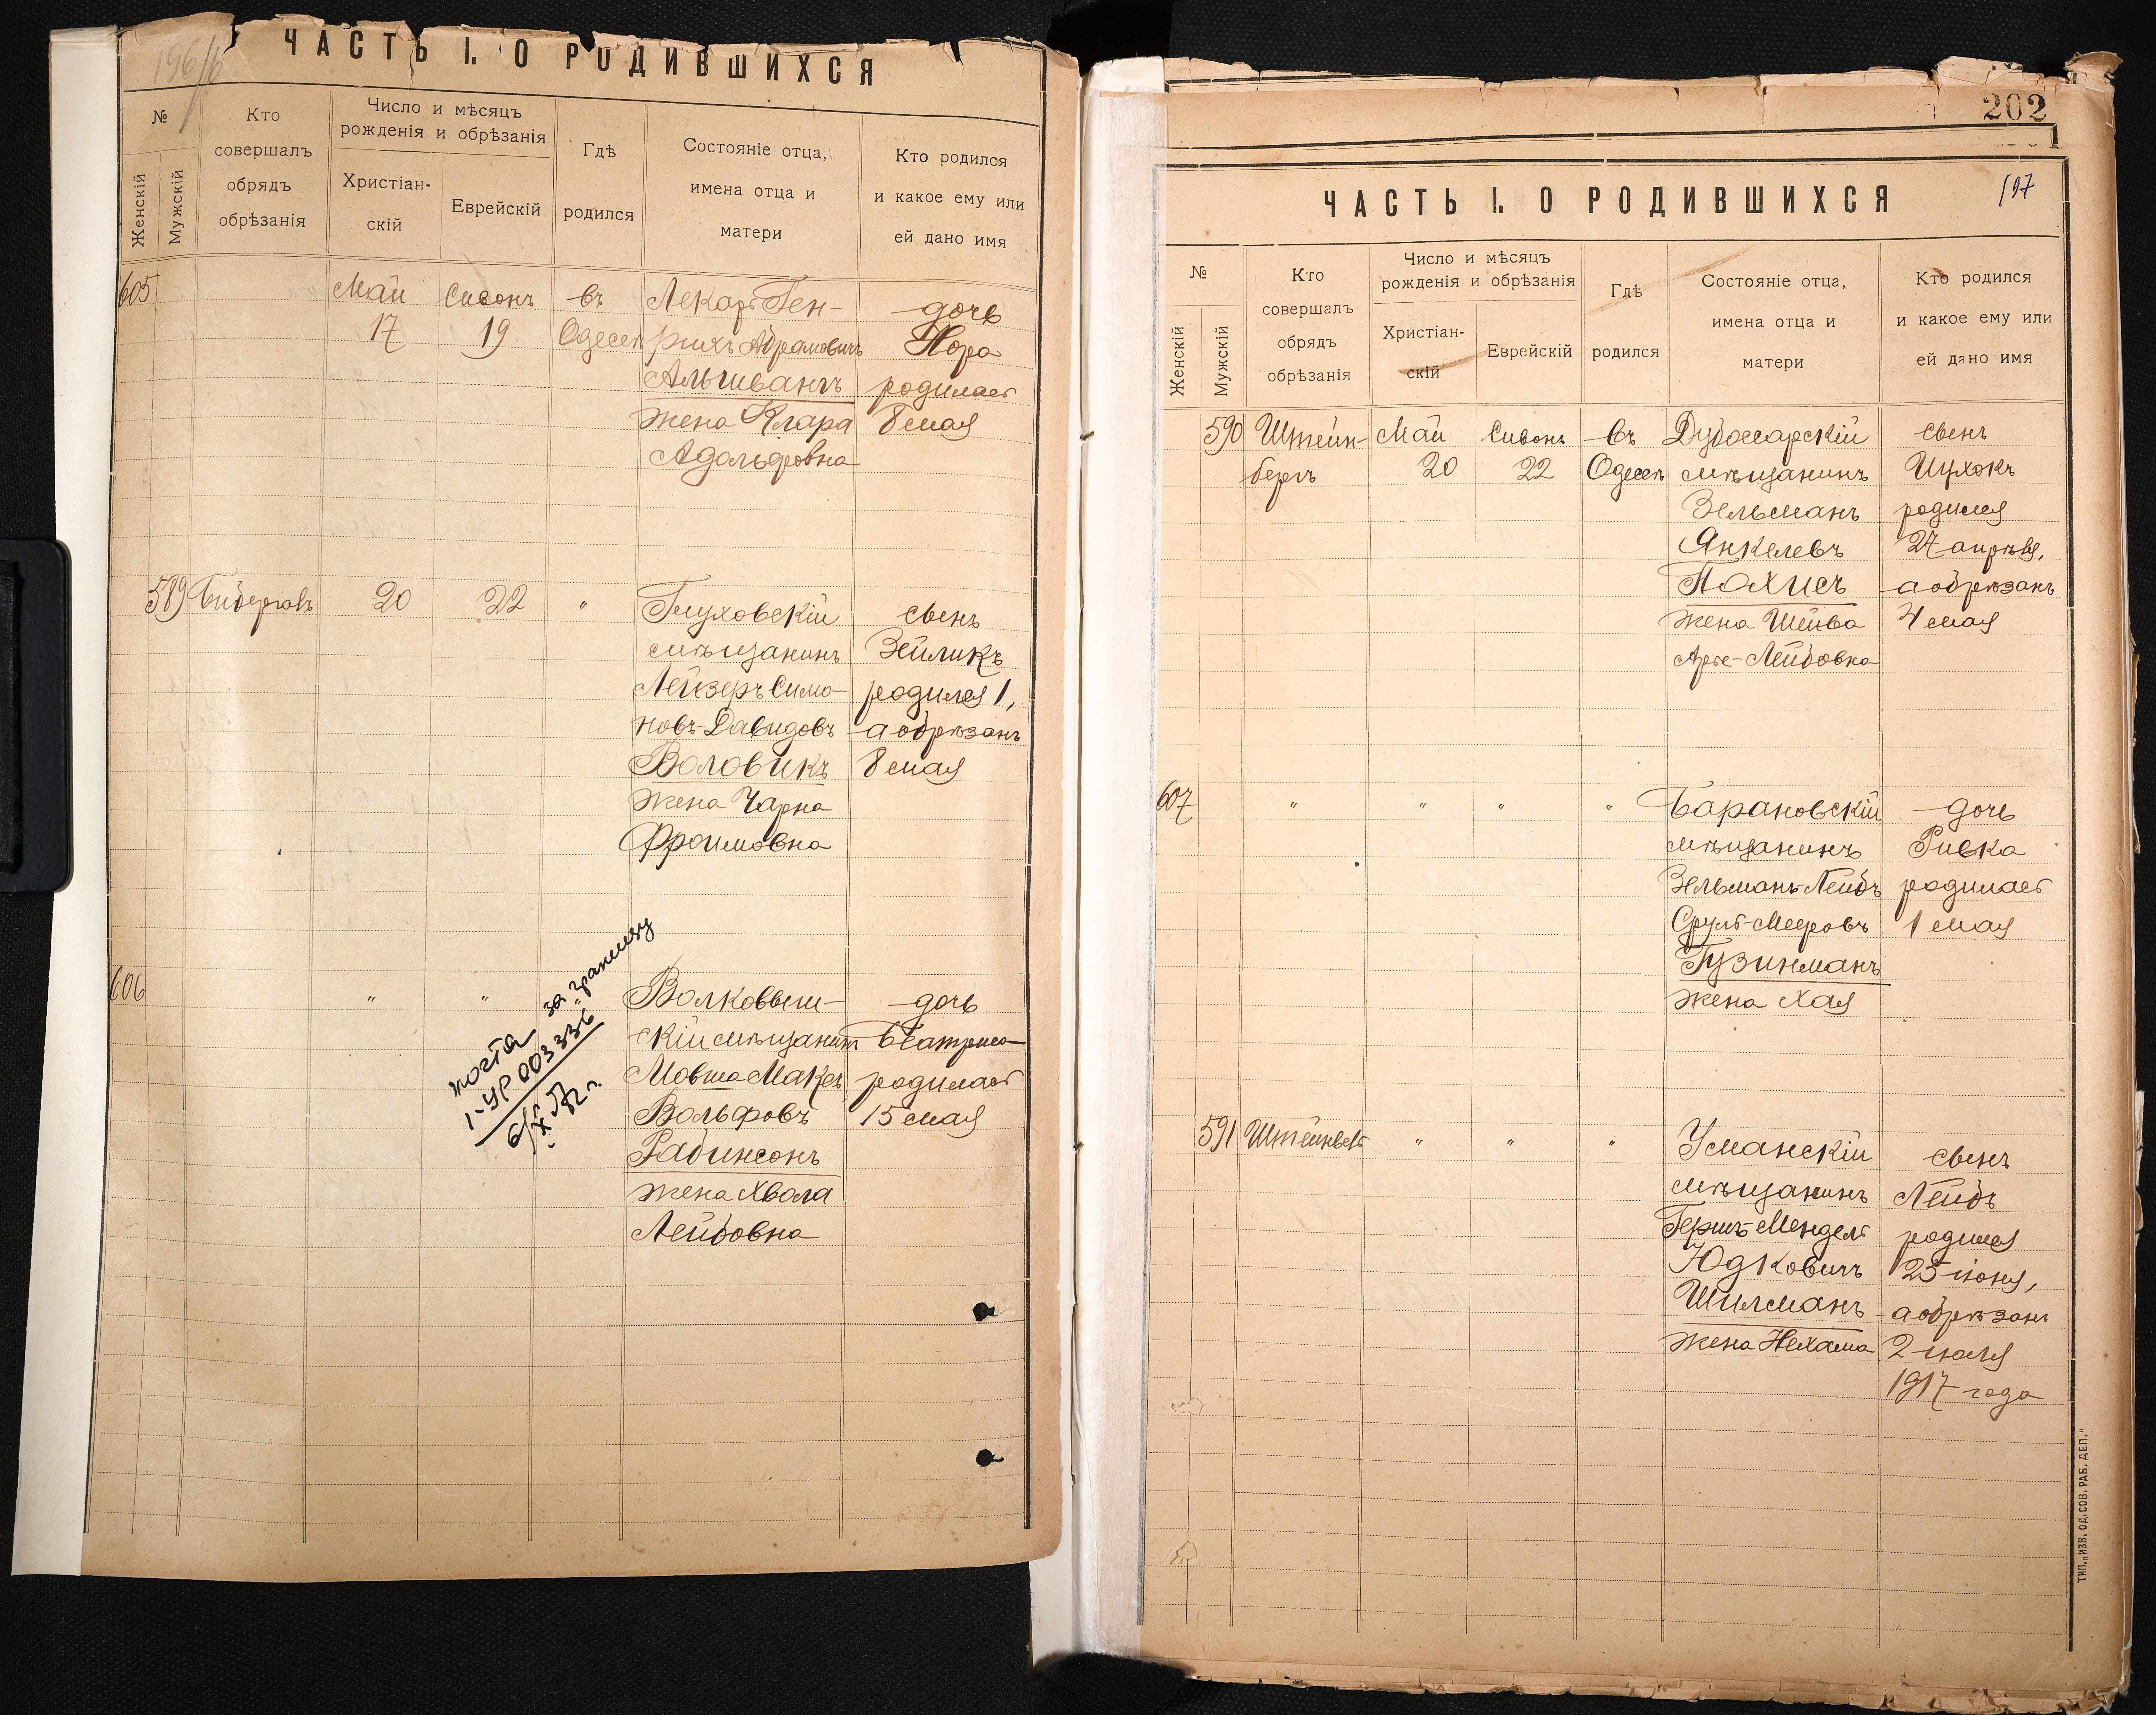 196/б
ЧАСТЬ I. О РОДИВШИХСЯ
№
Женскій
Мужскій
Кто
совершалъ
обрядъ
обрѣзанія
Число и мѣсяцъ
рожденія и обрѣзанія
Христіан-
скій
Еврейскій
Гдѣ
родился
Состояніе отца,
имена отца и
матери
Кто родился
и какое ему или
ей дано имя
605
Май
17
Сивонъ
19
въ
Одессѣ
Лекарь Ген-
рихъ Абрамовичъ
Альшвангъ
жена Клара
Адольфовна
дочь
Нора
родилась
8 мая
589
Бибергалъ
20
22
"
Глуховскій
мѣщанинъ
Лейзеръ Симо-
новъ-Давидовъ
Воловикъ
жена Чарна
Фроимовна
сынъ
Зейликъ
родился 1,
а обрѣзанъ
8 мая
606
"
"
Волковыш-
скій мѣщанинъ
Мовша Максъ
Вольфовъ
Рабинсонъ
жена Хвала
Лейбовна
дочь
Беатриса
родилась
15 мая
за границу
I-УР 003336
202
197
ЧАСТЬ I. О РОДИВШИХСЯ
№
Женскій
Мужскій
Кто
совершалъ
обрядъ
обрѣзанія
Число и мѣсяцъ
рожденія и обрѣзанія
Христіан-
скій
Еврейскій
Гдѣ
родился
Состояніе отца,
имена отца и
матери
Кто родился
и какое ему или
ей дано имя
590
Штейн-
бергъ
Май
20
Сивонъ
22
въ
Одессѣ
Дубоссарскій
мѣщанинъ
Зельманъ
Янкелевъ
Пахисъ
жена Шейва
Арье-Лейбовна
сынъ
Ицхокъ
родился
27 апрѣля,
а обрѣзанъ
4 мая
607
"
"
"
"
Барановскій
мѣщанинъ
Зельманъ-Лейбъ
Сруль-Мееровъ
Гузинманъ
жена Хая
дочь
Ривка
родилась
1 мая
591
Штейнвель
"
"
"
Уманскій
мѣщанинъ
Гершъ-Мендель
Юдковичъ
Шилманъ
жена Нехама
сынъ
Лейбъ
родился
25 іюня,
а обрѣзанъ
2 іюля
1917 года
ТИП. „ИЗВ. ОД. СОВ. РАБ. ДЕП."